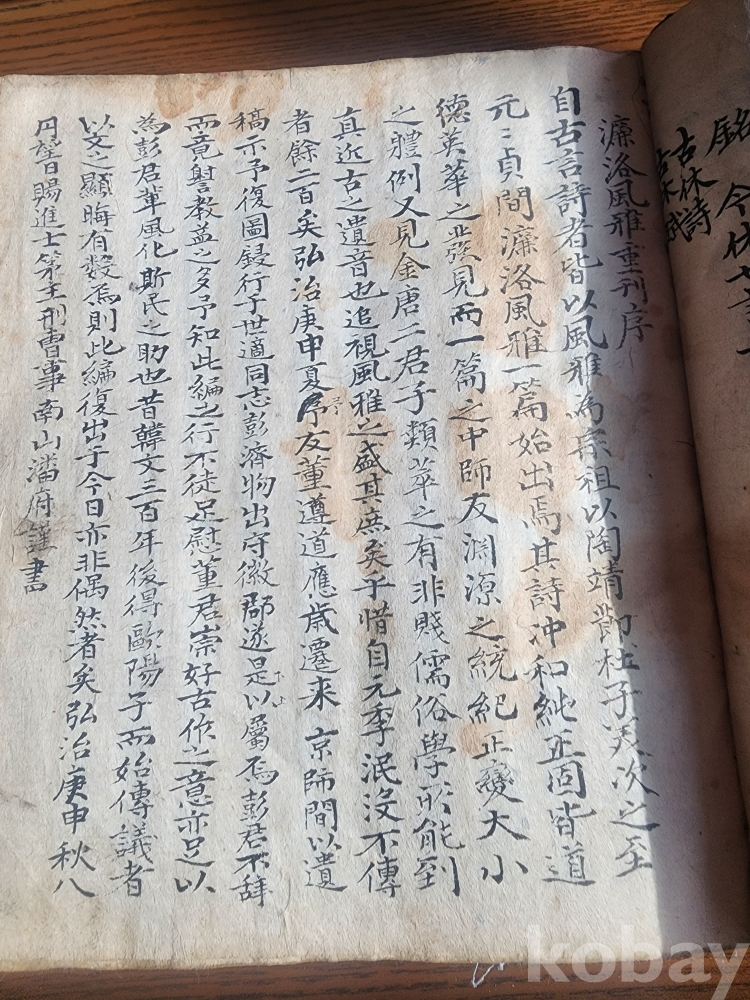 濂洛風雅重刊序
自古言詩者皆以風雅爲宗祖以陶靖節杜子美次之至
元元貞間濂洛風雅一篇始出焉其詩冲和純正固皆道
德英華之發見而一篇之中師友淵源之統紀正變大小
之體例又見金唐二君子類萃之有非賤儒俗學所能到
真近古之遺音也追視風雅之盛其庶矣乎惜自元季泯没不傳
者餘二百矣弘治庚申夏予友董遵道應歲遷来京師間以遺
稿示予復圖鋟行于世適同志彭濟物出守徽郡遂是以屬焉彭君不辞
而竟讐教益之多予知此編之行不徒足慰董君崇好古作之意亦足以
為彭君軰風化斯民之助也昔韓文二百年後得歐陽子而始傳議者
以文之顯晦有數焉則此編復出于今日亦非偶然者矣弘治庚申秋八
月望日賜進士第主刑曹事南山潘府謹書
銘
古休詩
kobay